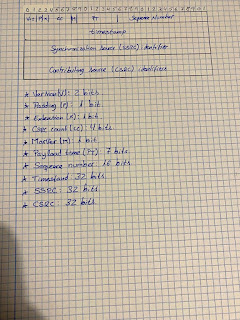 0 1 2 3 4 5 6 7 8 9 0 1 2 3 4 5 6 7 8 9 0 1 2 3 4 5 6 7 8 9 0 1
V=2 |P|X| CC |M| PT | Sequence Number
timestamp
Synchronization source (SSRC) identifier
Contributing source (CSRC) identifiers
* Version(V): 2 bits
* Padding (P): 1 bit
* Extension (X): 1 bit.
* CSRC count (CC): 4 bits
* Marker (M): 1 bit
* Payload type (PT): 7 bits
* Sequence number: 16 bits
* Timestamp: 32 bits
* SSRC: 32 bits
* CSRC: 32 bits.